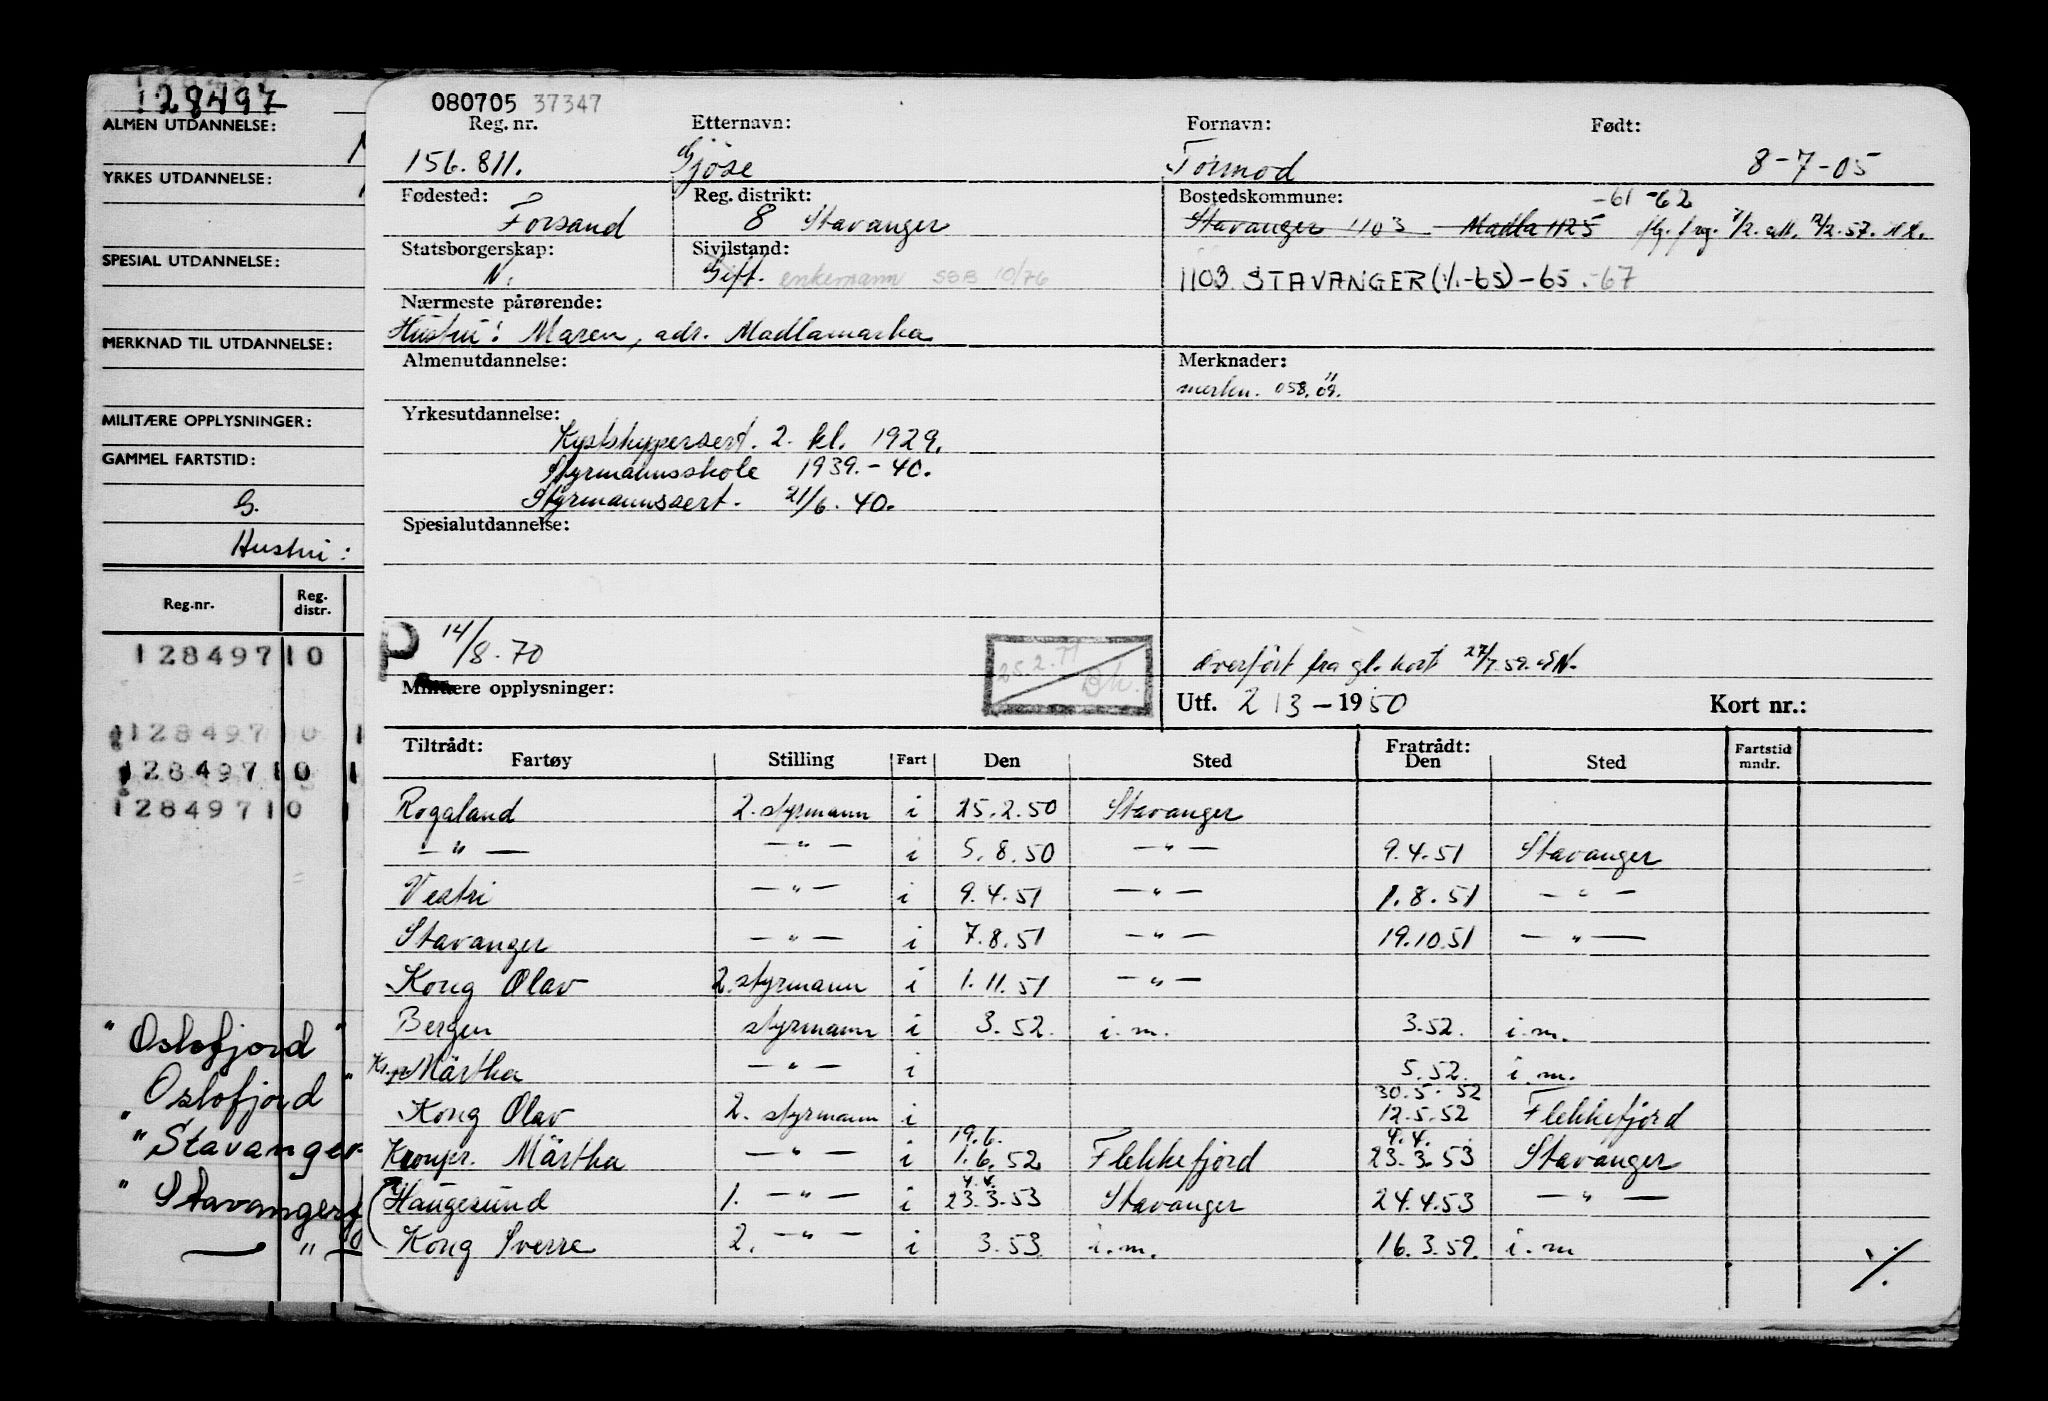 128497
ALMEN UTDANNELSE:
YRKES UTDANNELSE:
SPESIAL UTDANNELSE:
MERKNAD TIL UTDANNELSE:
MILITÆRE OPPLYSNINGER:
GAMMEL FARTSTID:
G.
Hustru:
Reg.nr. Reg. distr.
128497 10
128497 10 1
128497 10 1
128497 10 1
"Oslofjord"
Oslofjord"
"Stavanger
"Stavangerfj
— " —
080705 37347
Reg. nr. Etternavn: Fornavn: Født:
156.811. Gjöse Tormod 8-7-05
Fødested: Reg. distrikt: Bostedskommune: -61 -62
Forsand 8 Stavanger Stavanger 1103 - Madla 1125 flg. frg. 7/2. att. 12/2.57. N.L.
Statsborgerskap: Sivilstand:
N. Gift. enkemann SSB 10/76 1103 STAVANGER (1/1-65) -65.-67
Nærmeste pårørende:
Hustru: Maren, adr. Madlamarka
Almenutdannelse: Merknader:
merkn. 058. 09.
Yrkesutdannelse:
Kystskippersert. 2. kl. 1929.
Styrmannsskole 1939.-40.
Styrmannssert. 21/6.40.
Spesialutdannelse:
P 14/8.70 25.2.71 Overført fra gl. kort 27/7.59.
Militære opplysninger: Utf. 2/3-1950 Kort nr.:
Tiltrådt: Fratrådt: Fartstid
Fartøy Stilling Fart Den Sted Den Sted mndr.
Rogaland 2. styrmann i 25.2.50 Stavanger
— " — — " — i 5.8.50 — " — 9.4.51 Stavanger
Vestri — " — i 9.4.51 — " — 1.8.51 — " —
Stavanger — " — i 7.8.51 — " — 19.10.51 — " —
Kong Olav 2. styrmann i 1.11.51 — " —
Bergen styrmann i 3.52. i.m. 3.52. i.m.
Kr.pr Märtha — " — i 5.52. i.m.
30.5.52
Kong Olav 2. styrmann i 12.5.52 Flekkefjord
19.6. 4.4.
Kronpr. Märtha — " — i 1.6.52 Flekkefjord 23.3.53 Stavanger
4.4.
Haugesund 1. — " — i 23.3.53 Stavanger 24.4.53 — " —
Kong Sverre 2. — " — i 3.53 i.m. 16.3.59. i.m
%.